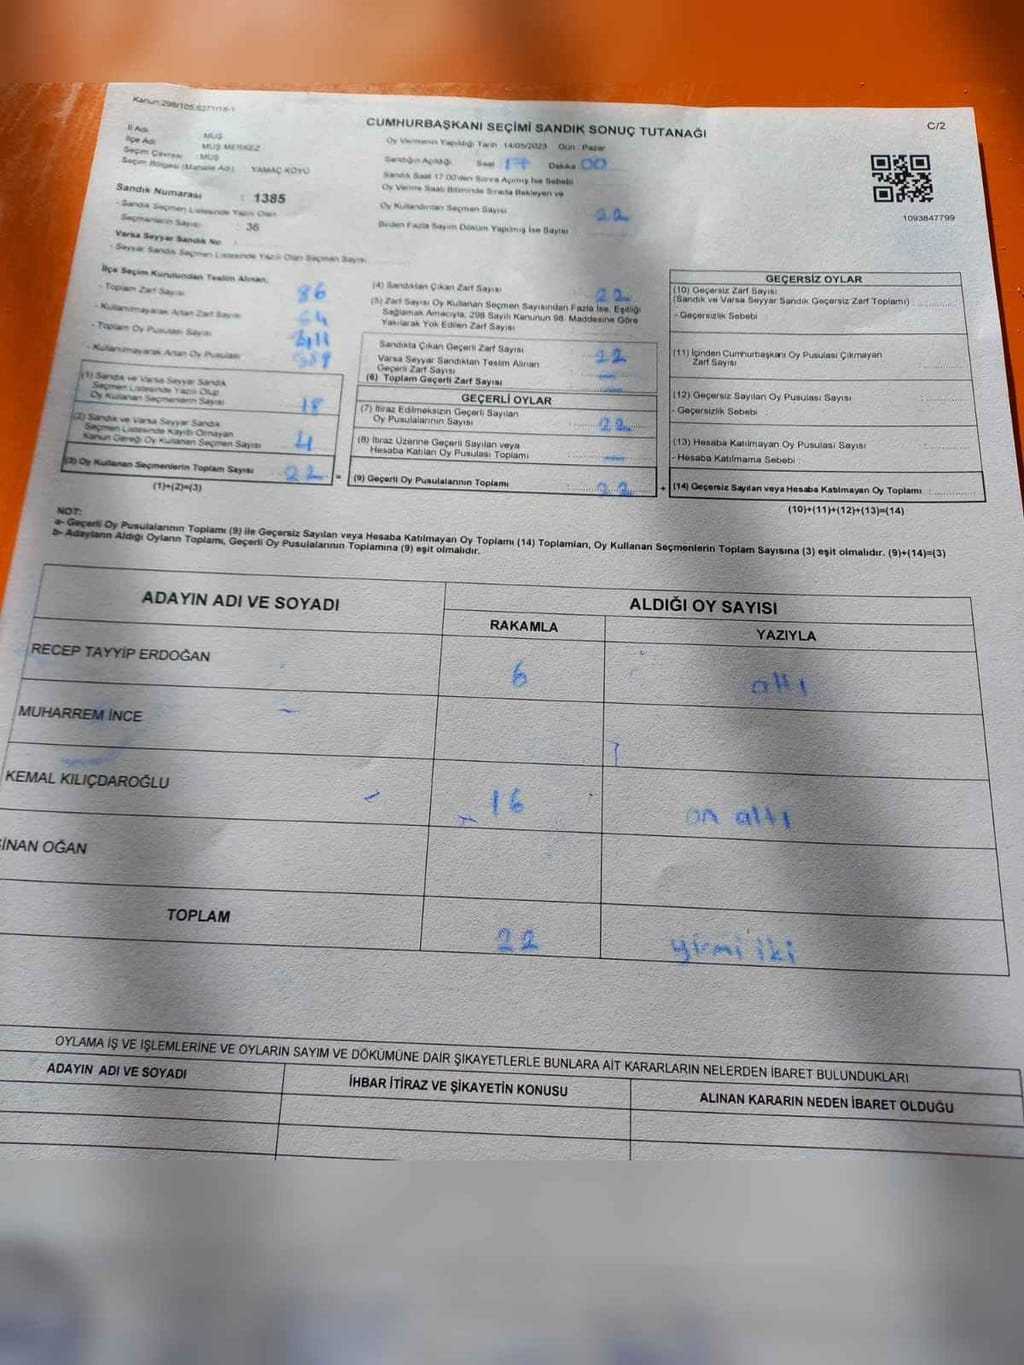 Kanun:298/105,6271/18-1
CUMHURBAŞKANI SEÇİMİ SANDIK SONUÇ TUTANAĞI
C/2
İl Adı : MUŞ
İlçe Adı : MUŞ MERKEZ
Seçim Çevresi : MUŞ
Seçim Bölgesi (Mahalle Adı) : YAMAÇ KÖYÜ
Oy Vermenin Yapıldığı Tarih 14/05/2023 Gün Pazar
Sandığın Açıldığı Saat 17 Dakika 00
Sandık Saat 17:00'den Sonra Açılmış İse Sebebi
Oy Verme Saati Bitiminde Sırada Bekleyen ve
Oy Kullandırılan Seçmen Sayısı 22
Birden Fazla Sayım Döküm Yapılmış İse Sayısı
1093847799
Sandık Numarası : 1385
- Sandık Seçmen Listesinde Yazılı Olan
Seçmenlerin Sayısı : 36
Varsa Seyyar Sandık No
- Seyyar Sandık Seçmen Listesinde Yazılı Olan Seçmen Sayısı
İlçe Seçim Kurulundan Teslim Alınan;
- Toplam Zarf Sayısı 86
- Kullanılmayarak Artan Zarf Sayısı 64
- Toplam Oy Pusulası Sayısı
- Kullanılmayarak Artan Oy Pusulası
(1) Sandık ve Varsa Seyyar Sandık
Seçmen Listesinde Yazılı Olup
Oy Kullanan Seçmenlerin Sayısı 18
(2) Sandık ve Varsa Seyyar Sandık
Seçmen Listesinde Kayıtlı Olmayan
Kanun Gereği Oy Kullanan Seçmen Sayısı 4
(3) Oy Kullanan Seçmenlerin Toplam Sayısı 22 =
(1)+(2)=(3)
(4) Sandıktan Çıkan Zarf Sayısı 22
(5) Zarf Sayısı Oy Kullanan Seçmen Sayısından Fazla İse, Eşitliği
Sağlamak Amacıyla, 298 Sayılı Kanunun 98. Maddesine Göre
Yakılarak Yok Edilen Zarf Sayısı
Sandıkta Çıkan Geçerli Zarf Sayısı 22
Varsa Seyyar Sandıktan Teslim Alınan
Geçerli Zarf Sayısı
(6) Toplam Geçerli Zarf Sayısı
GEÇERLİ OYLAR
(7) İtiraz Edilmeksizin Geçerli Sayılan
Oy Pusulalarının Sayısı 22
(8) İtiraz Üzerine Geçerli Sayılan veya
Hesaba Katılan Oy Pusulası Toplamı
(9) Geçerli Oy Pusulalarının Toplamı 22 +
GEÇERSİZ OYLAR
(10) Geçersiz Zarf Sayısı
(Sandık ve Varsa Seyyar Sandık Geçersiz Zarf Toplamı) :
- Geçersizlik Sebebi :
(11) İçinden Cumhurbaşkanı Oy Pusulası Çıkmayan
Zarf Sayısı :
(12) Geçersiz Sayılan Oy Pusulası Sayısı :
- Geçersizlik Sebebi :
(13) Hesaba Katılmayan Oy Pusulası Sayısı :
- Hesaba Katılmama Sebebi :
(14) Geçersiz Sayılan veya Hesaba Katılmayan Oy Toplamı :
(10)+(11)+(12)+(13)=(14)
NOT:
a- Geçerli Oy Pusulalarının Toplamı (9) ile Geçersiz Sayılan veya Hesaba Katılmayan Oy Toplamı (14) Toplamları, Oy Kullanan Seçmenlerin Toplam Sayısına (3) eşit olmalıdır. (9)+(14)=(3)
b- Adayların Aldığı Oyların Toplamı, Geçerli Oy Pusulalarının Toplamına (9) eşit olmalıdır.
ADAYIN ADI VE SOYADI
ALDIĞI OY SAYISI
RAKAMLA
YAZIYLA
RECEP TAYYİP ERDOĞAN 6 altı
MUHARREM İNCE
KEMAL KILIÇDAROĞLU 16 on altı
SİNAN OĞAN
TOPLAM 22 yirmi iki
OYLAMA İŞ VE İŞLEMLERİNE VE OYLARIN SAYIM VE DÖKÜMÜNE DAİR ŞİKAYETLERLE BUNLARA AİT KARARLARIN NELERDEN İBARET BULUNDUKLARI
ADAYIN ADI VE SOYADI
İHBAR İTİRAZ VE ŞİKAYETİN KONUSU
ALINAN KARARIN NEDEN İBARET OLDUĞU